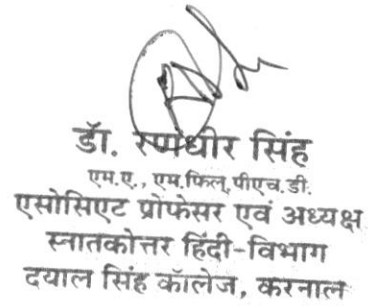 डॉ. रणधीर सिंह
एम.ए., एम.फिल्,पीएच.डी.
एसोसिएट प्रोफेसर एवं अध्यक्ष
स्नातकोत्तर हिंदी-विभाग
दयाल सिंह कॉलेज, करनाल